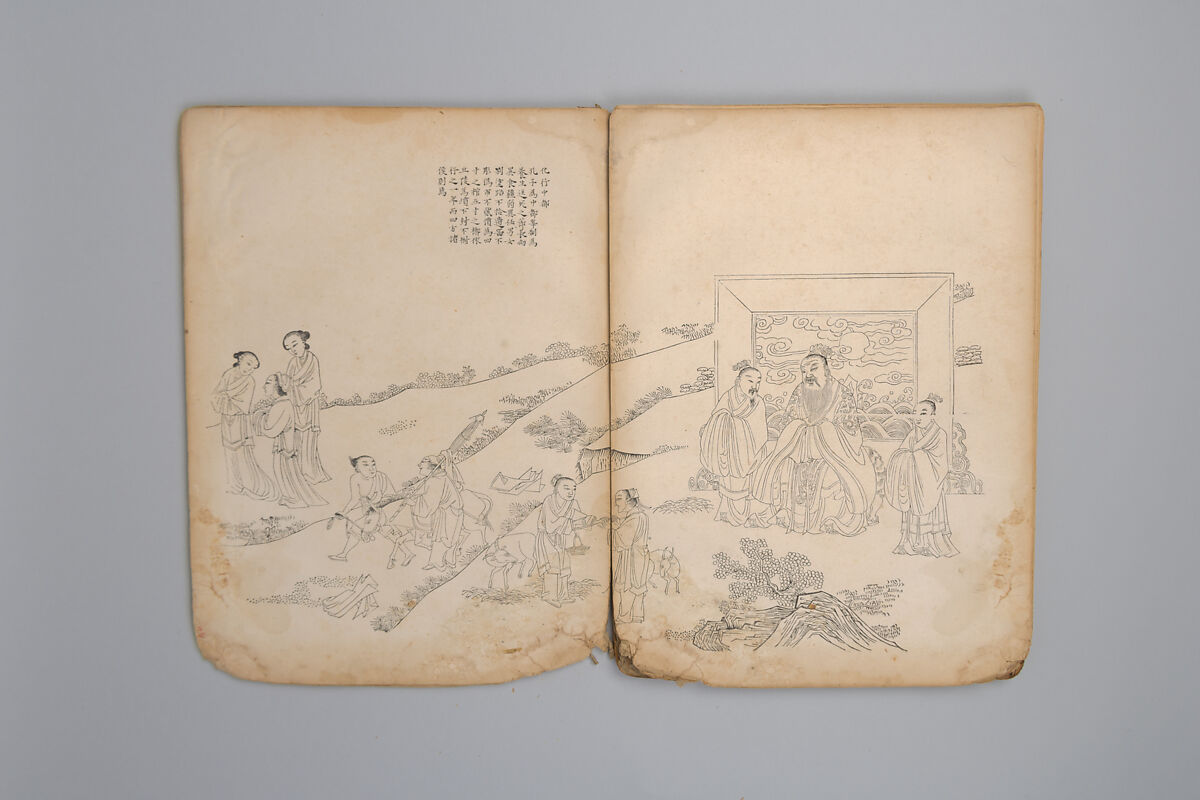 化行中都
孔子為中都宰制為
養生送死之節長幼
異食強弱異任男女
別塗路不拾遺器不
彫偽市不貳價為四
寸之棺五寸之槨依
丘陵為墳不封不樹
行之一年而四方諸
侯則焉